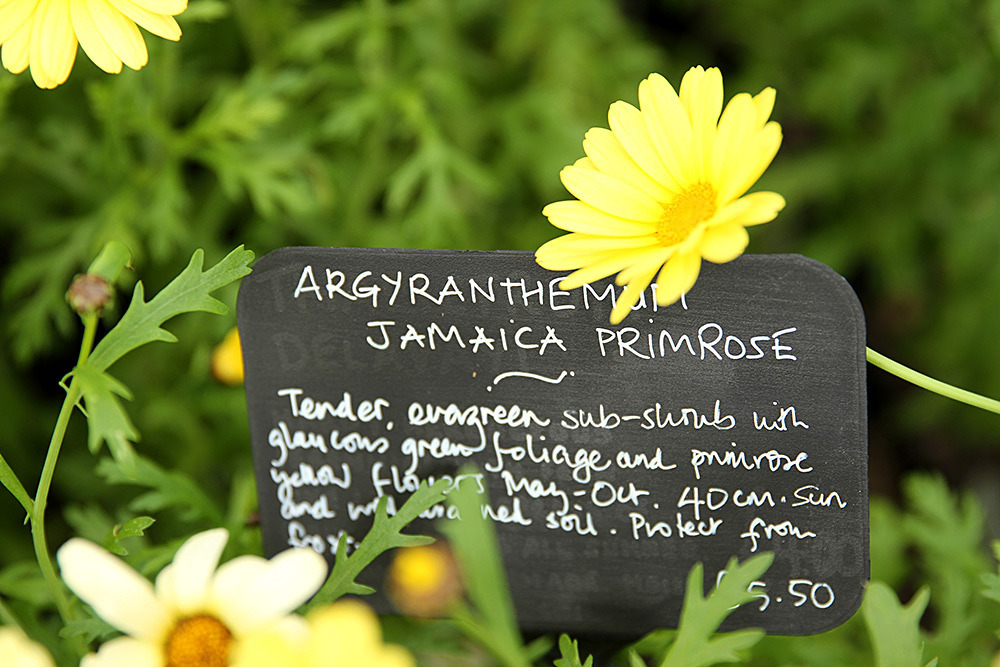 ARGYRANTHEMUM
JAMAICA PRIMROSE
Tender, evergreen sub-shrub with
glaucous green foliage and primrose
yellow flowers May-Oct. 40cm. Sun
and well drained soil. Protect from
frost.
£5.50